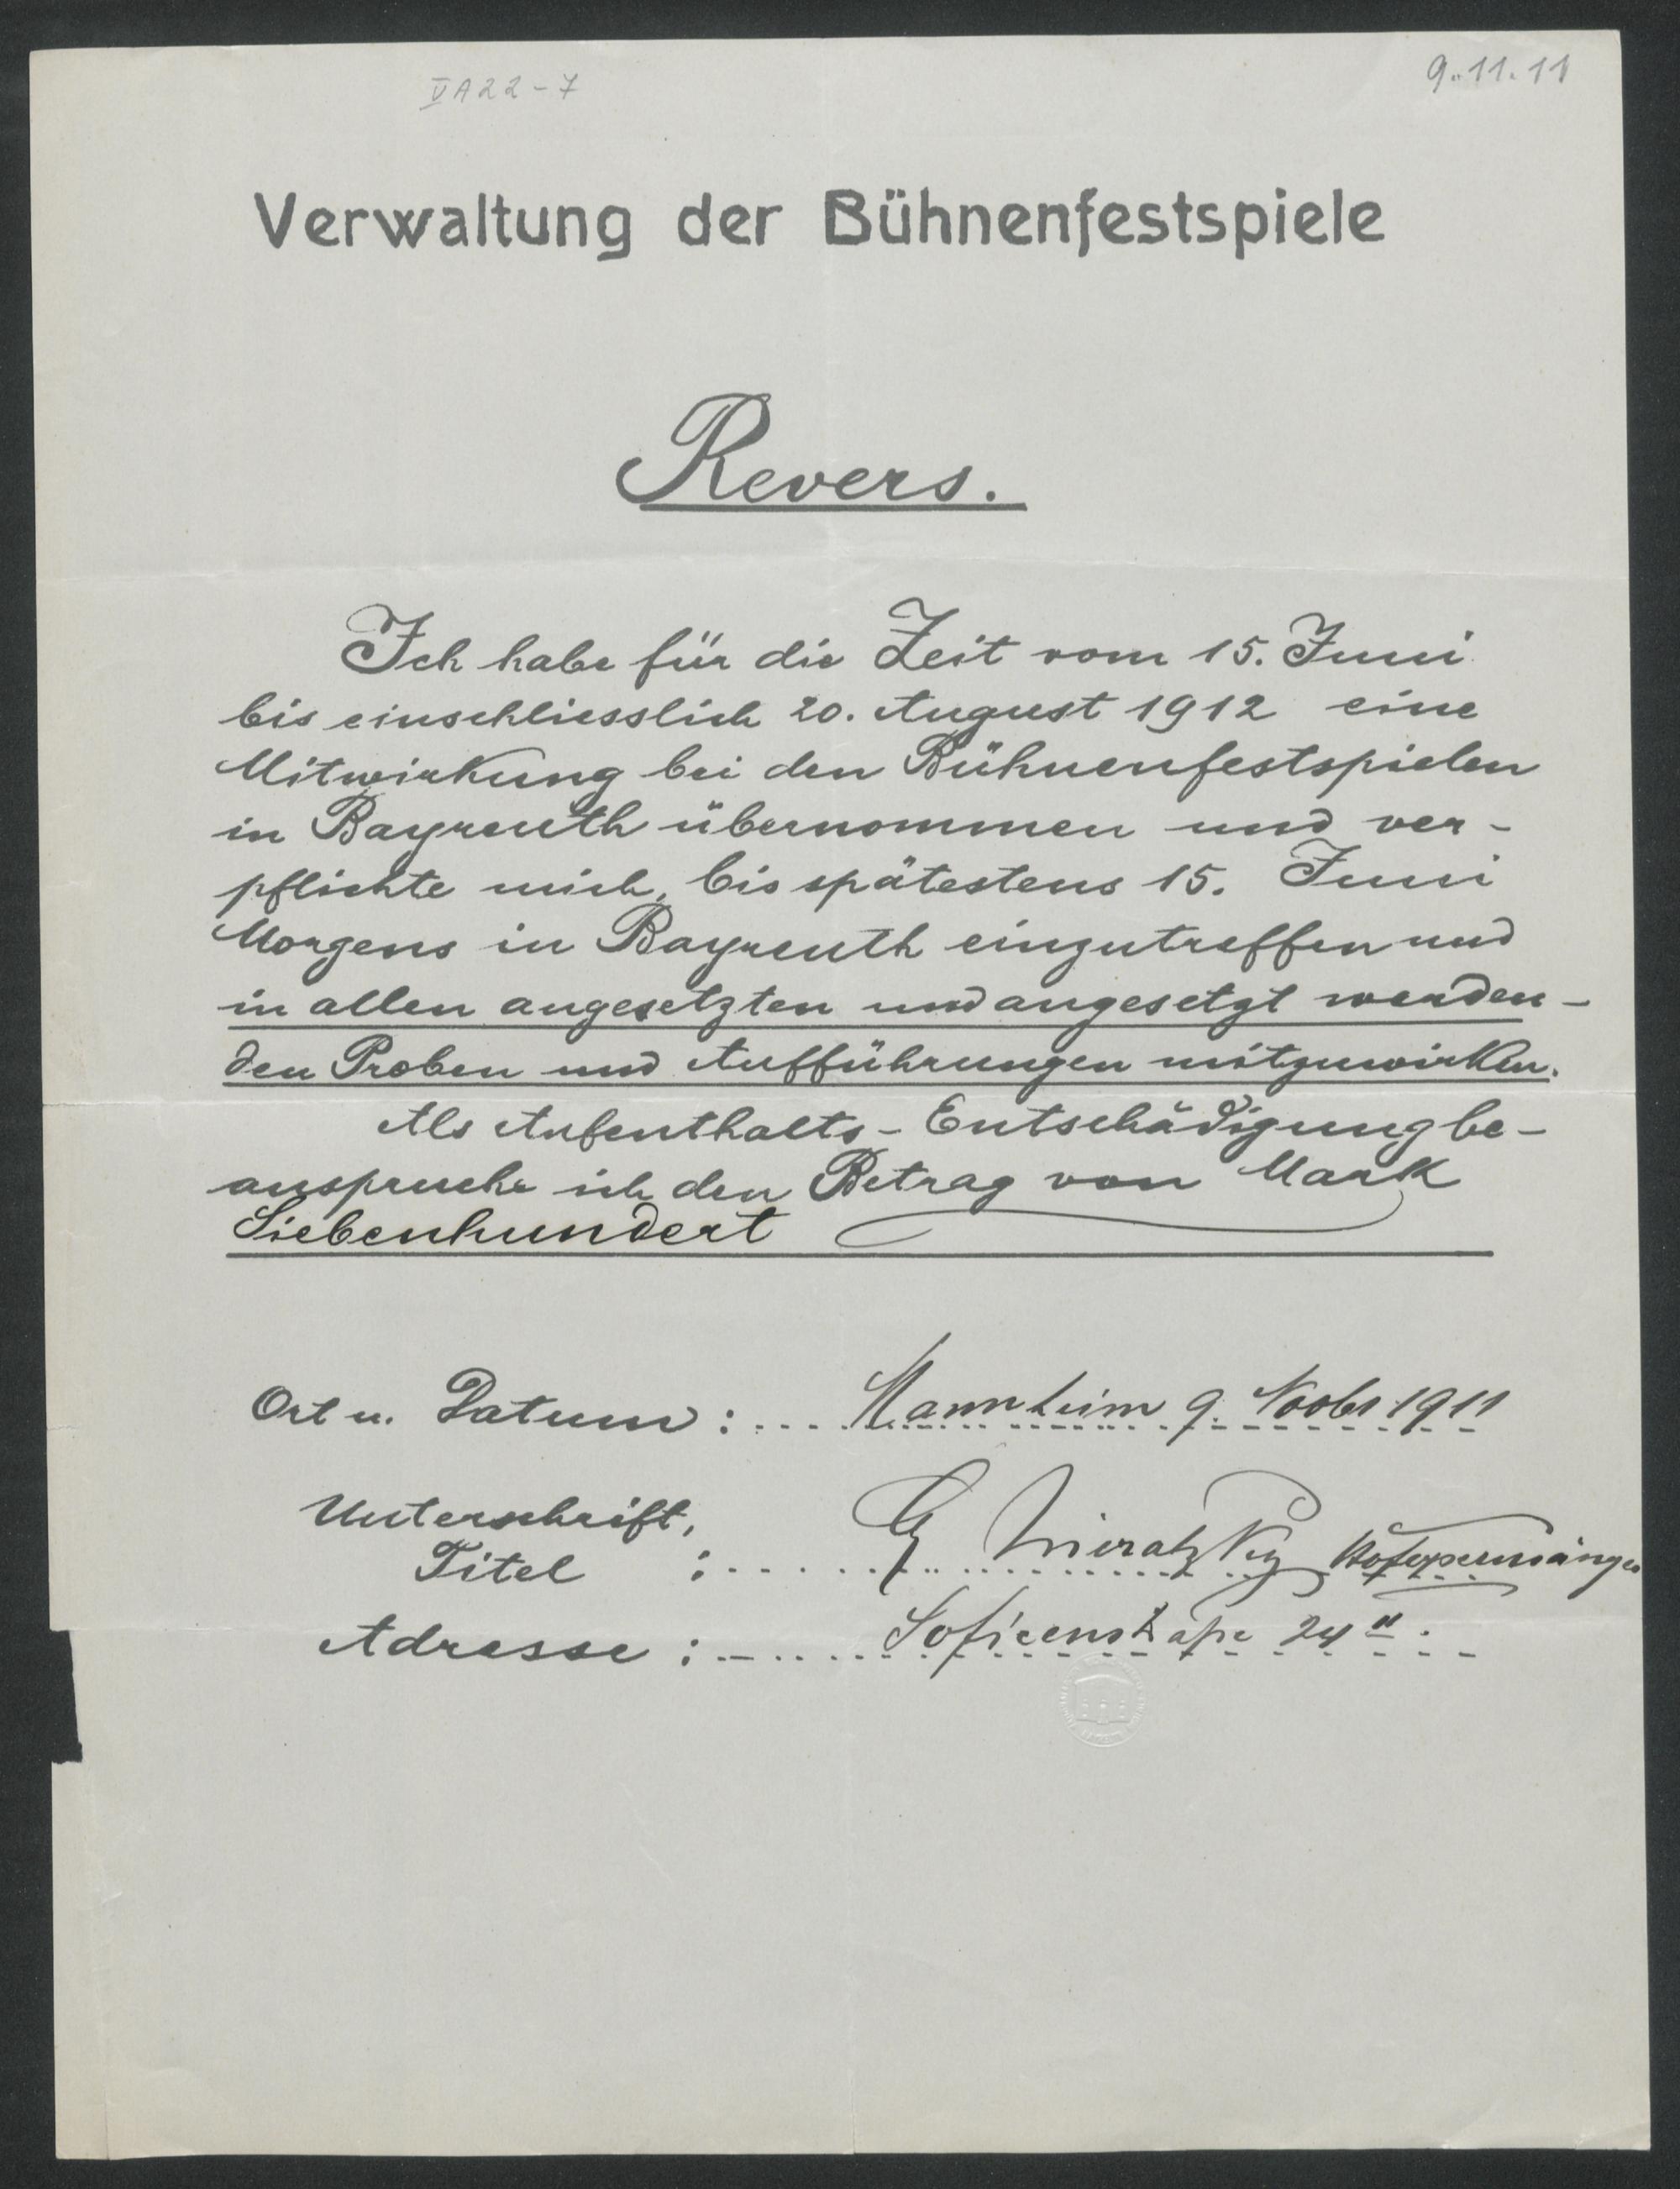 V A 22 - 7
9.11.11
Verwaltung der Bühnenfestspiele
Revers.
Ich habe für die Zeit vom 15. Juni
bis einschliesslich 20. August 1912 eine
Mitwirkung bei den Bühnenfestspielen
in Bayreuth übernommen und ver-
pflichte mich, bis spätestens 15. Juni
Morgens in Bayreuth einzutreffen und
in allen angesetzten und angesetzt werden-
den Proben und Aufführungen mitzuwirken.
Als Aufenthalts-Entschädigung be-
anspruche ich den Betrag von Mark
Siebenhundert
Ort u. Datum: Mannheim 9. Novbr 1911
Unterschrift,
Titel : Hofopernsänger
Adresse: Sofienstraße 24 II.